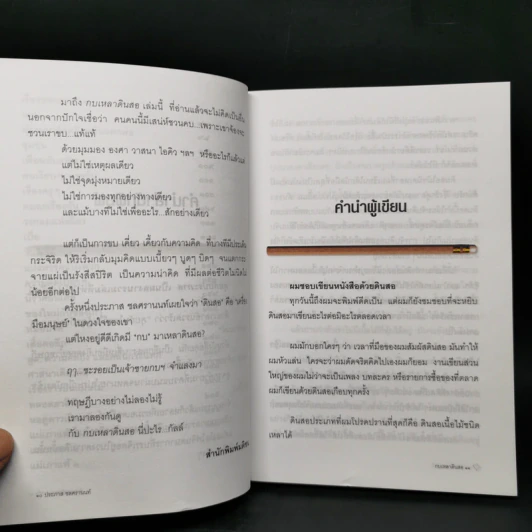 มาถึง กบเหลาดินสอ เล่มนี้ ที่อ่านแล้วจะไม่คิดเป็นอื่น
นอกจากปักใจเชื่อว่า คนคนนี้มีเสน่ห์ชวนคบ...เพราะเขาจ้องจะ
ชวนเราขบ...แท้แท้
ด้วยมุมมอง องศา วาสนา ไอคิว ฯลฯ หรืออะไรก็แล้วแต่
แต่ไม่ใช่เหตุผลเดียว
ไม่ใช่จุดมุ่งหมายเดียว
ไม่ใช่การมองทุกอย่างทางเดียว
และแม้บางทีไม่ใช่เพื่ออะไร...สักอย่างเดียว
แต่ก็เป็นการขบ เคี่ยว เคี้ยวกับความคิด ที่บางทีมีประดับ
กระจิริด ให้ริเริ่มกลับมุมคิดแบบเบี้ยวๆ บูดๆ บิดๆ จนแตกกระ
จายแผ่เป็นรังสีสปิริต เป็นความน่าคิด ที่มีผลต่อชีวิตไม่นิด
น้อยอีกต่อไป
ครั้งหนึ่งประภาส ชลศรานนท์เผยใจว่า 'ดินสอ' คือ 'เครื่อง
มือมนุษย์' ในดวงใจของเขา
แต่ไหงอยู่ดีดีเกิดมี "กบ" มาเหลาดินสอ?
ฤๅ...ชะรอยเป็นเจ้าชายกบฯ จำแลงมา
ทฤษฎีบางอย่างไม่ลองไม่รู้
เรามาลองกันดู
กับ กบเหลาดินสอ นี่ปะไร กัลล์
สำนักพิมพ์
๑๐ ประภาส ชลศรานนท์
คำนำผู้เขียน
ผมชอบเขียนหนังสือด้วยดินสอ
ทุกวันนี้ถึงผมจะพิมพ์ดีดเป็น แต่ผมก็ยังชมชอบที่จะหยิบ
ดินสอมาเขียนอะไรต่อมิอะไรตลอดเวลา
ผมมักบอกใครๆ ว่า เวลาที่มือของผมสัมผัสดินสอ มันทำให้
ผมหัวแล่น ใครจะว่าผมดัดจริตคิดไปเองผมก็ยอม งานเขียนส่วน
ใหญ่ของผมไม่ว่าจะเป็นเพลง บทละคร หรือรายการซื้อของที่ตลาด
ผมก็เขียนด้วยดินสอเกือบทุกครั้ง
ดินสอประเภทที่ผมโปรดปรานที่สุดก็คือ ดินสอเนื้อไม้ชนิด
เหลาได้
กบเหลาดินสอ ๑๑